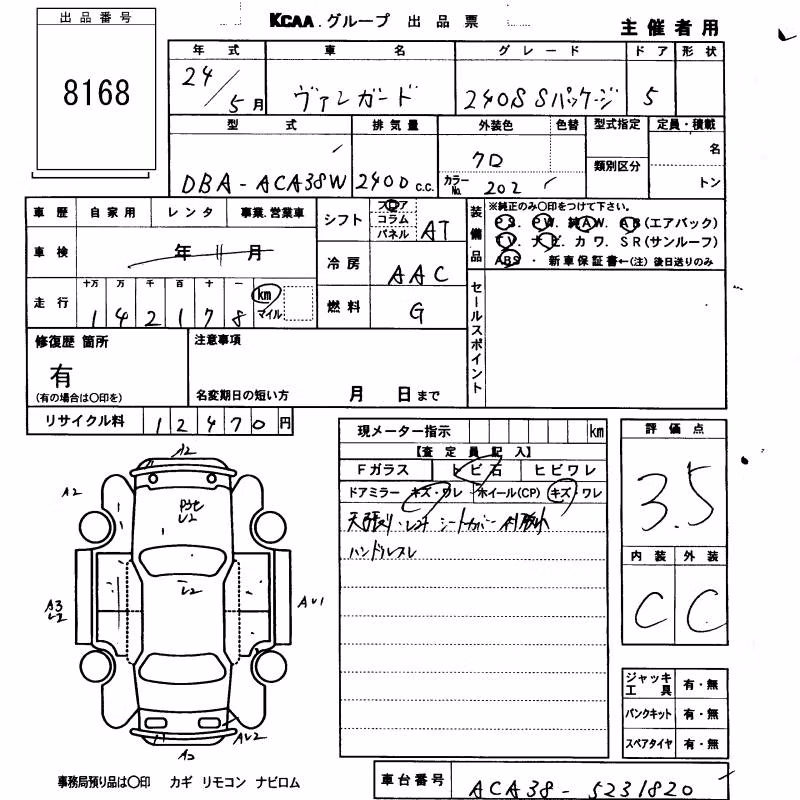 出品番号
8168
KCAA.グループ 出品票
主催者用
年式 車名 グレード ドア 形状
24/5月 ヴァンガード 240S Sパッケージ 5
型式 排気量 外装色 色替 型式指定 定員・積載
DBA-ACA38W 2400 c.c. クロ 類別区分 名
カラーNo. 202 トン
車歴 自家用 レンタ 事業.営業車
シフト フロア コラム パネル AT
装備品 ※純正のみ〇印をつけて下さい。
PS. PW. 純AW. AB(エアバック)
TV. ナビ. カワ. SR(サンルーフ)
ABS ・ 新車保証書←(注) 後日送りのみ
車検 年 11 月
冷房 AAC
走行 十万 万 千 百 十 一
142178 km マイル
燃料 G
セールスポイント
修復歴 箇所
有
(有の場合は〇印を)
注意事項
名変期日の短い方 月 日まで
リサイクル料 12470円
現メーター指示 km
【査定員記入】
Fガラス トビ石 ヒビワレ
ドアミラー キズ・ワレ ホイール(CP) キズ・ワレ
シートカバー
ハンドルスレ
評価点
3.5
内装 外装
C C
A2
A2
U2
U2
A3
U2
AU1
AU2
A2
ジャッキ工具 有・無
パンクキット 有・無
スペアタイヤ 有・無
事務局預り品は〇印 カギ リモコン ナビロム
車台番号 ACA38-5231820